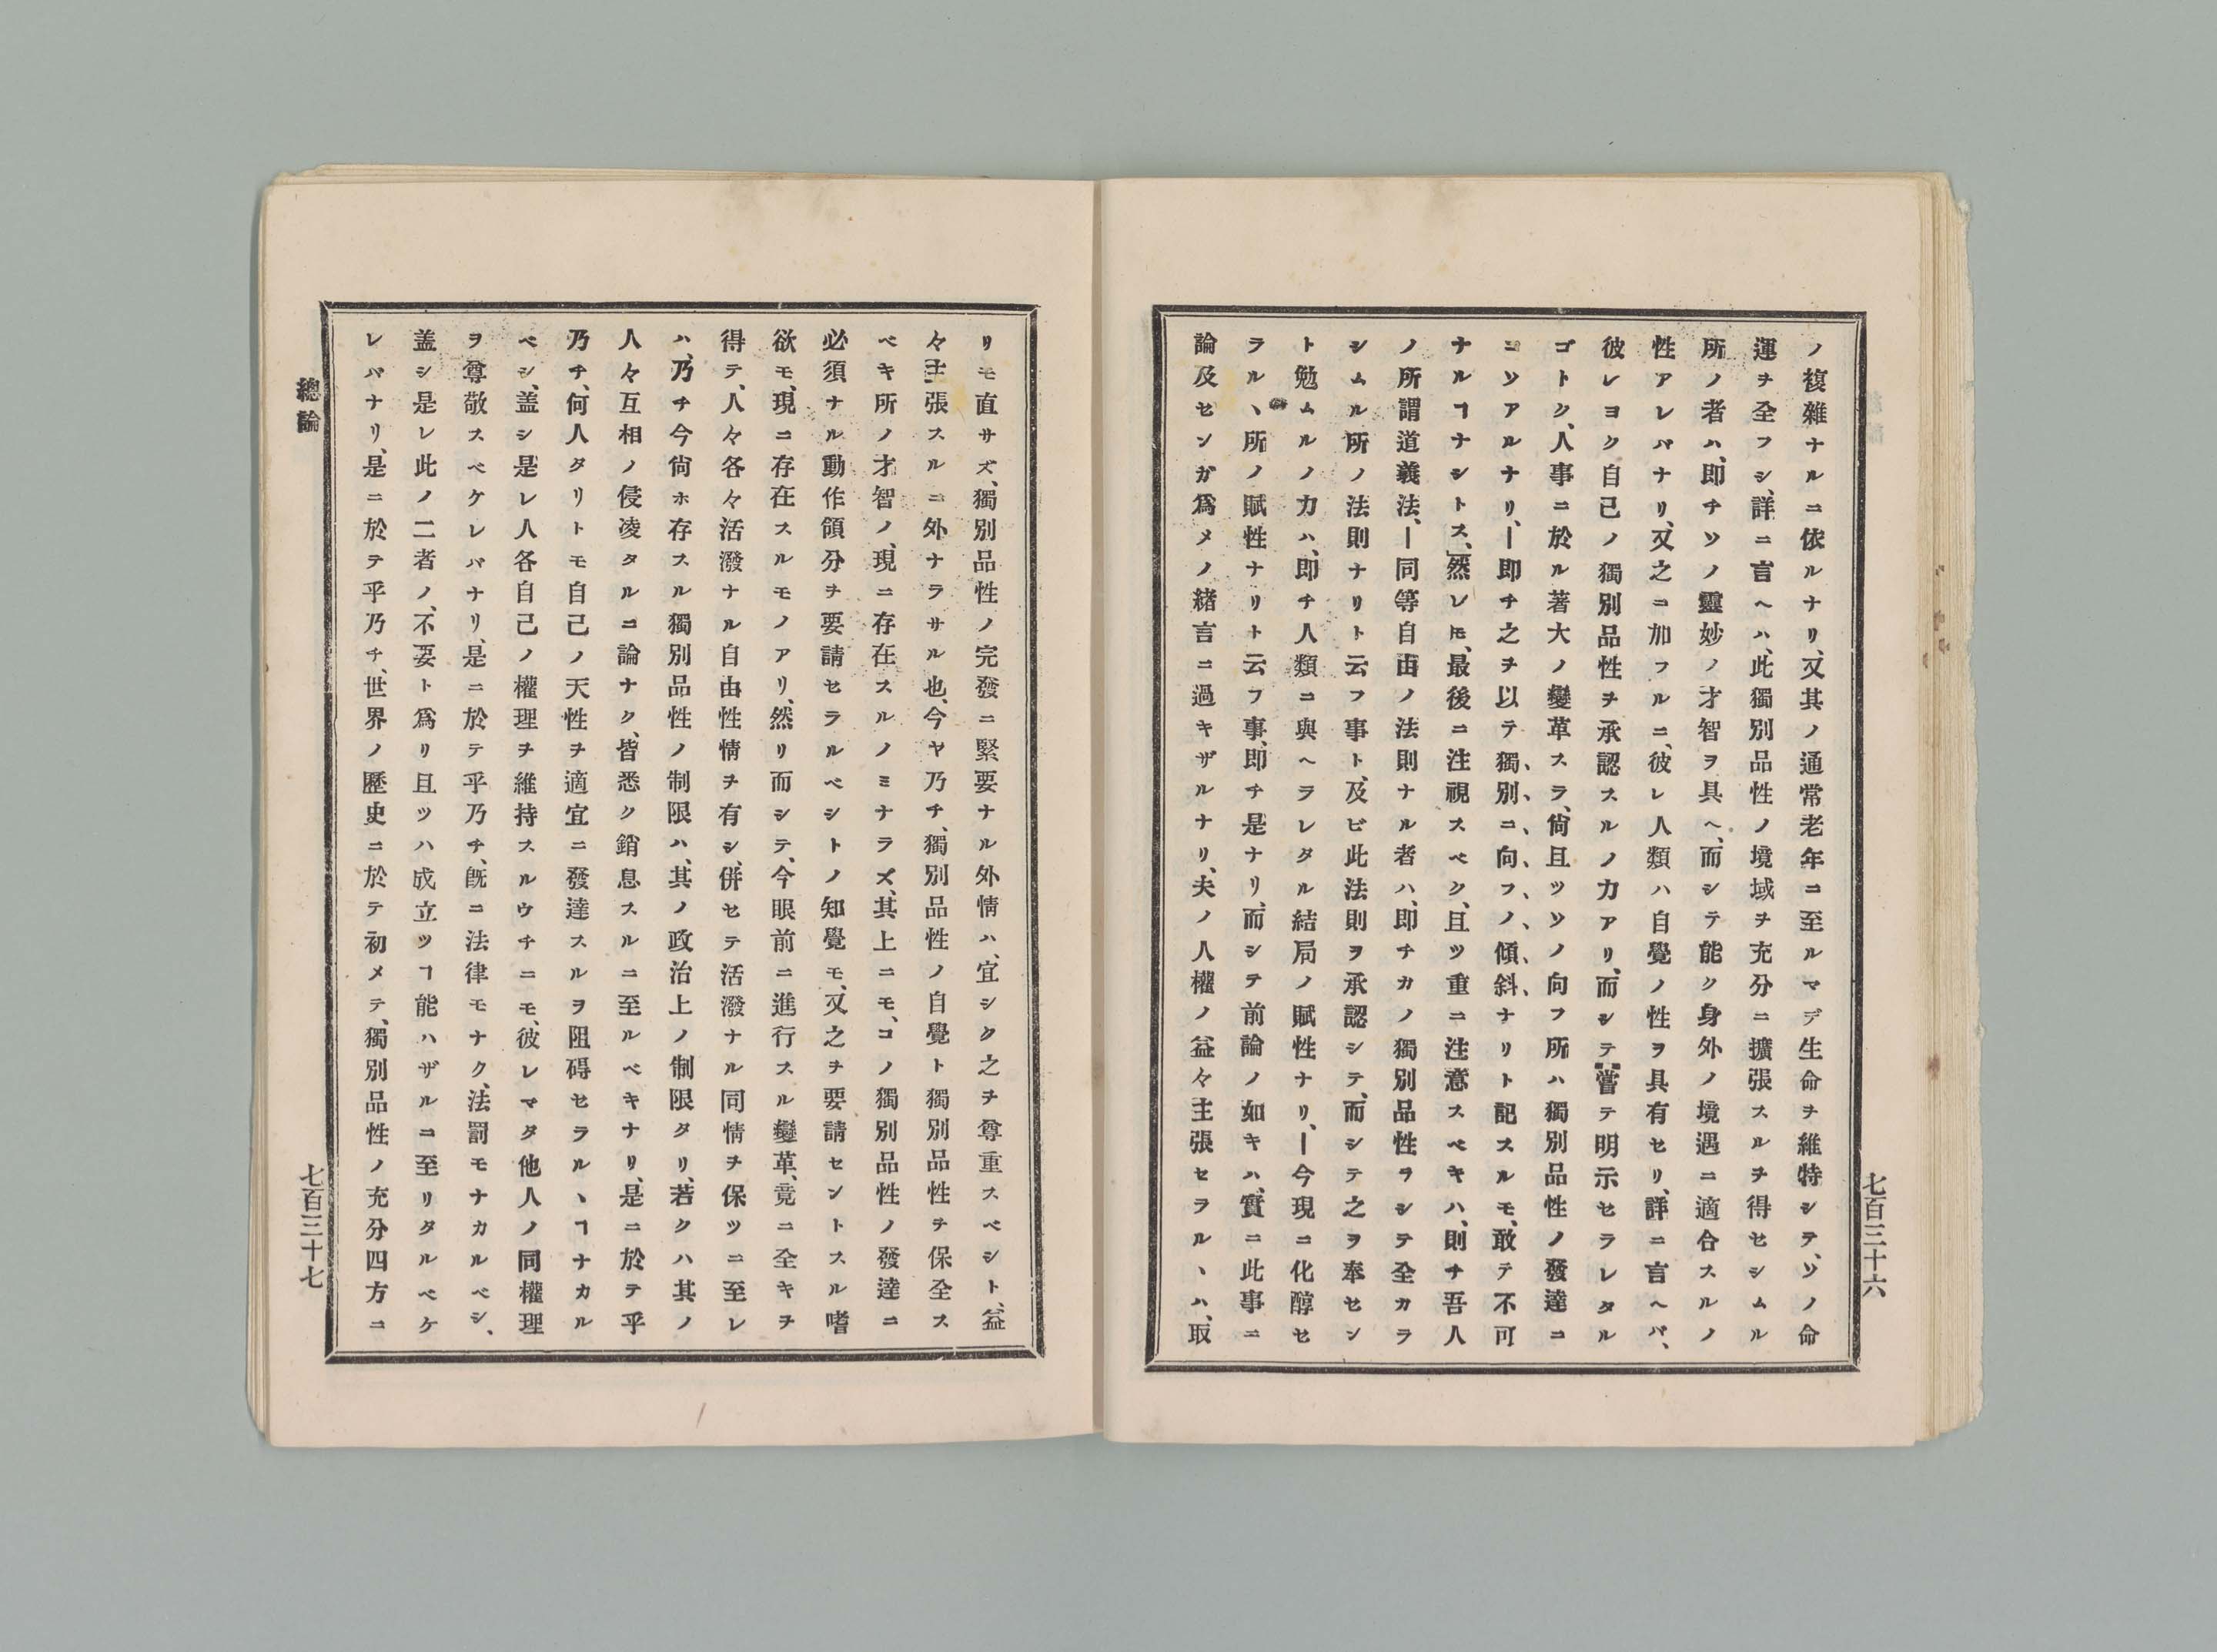 ノ複雜ナルニ依ルナリ、又其ノ通常老年ニ至ルマデ生命ヲ維特シテ、ソノ命
運ヲ全フシ、詳ニ言ヘハ、此獨別品性ノ境域ヲ充分ニ擴張スルヲ得セシムル
所ノ者ハ、即チソノ靈妙ノ才智ヲ具ヘ、而シテ能ク身外ノ境遇ニ適合スルノ
性アレバナリ、又之ニ加フルニ、彼レ人類ハ自覺ノ性ヲ具有セリ、詳ニ言ヘバ、
彼レヨク自己ノ獨別品性ヲ承認スルノ力アリ、而シテ嘗テ明示セラレタル
ゴトク、人事ニ於ル著大ノ變革スラ、尙且ツソノ向フ所ハ獨別品性ノ發達ニ
コソアルナリ、―即チ之ヲ以テ獨別ニ向フノ傾斜ナリト記スルモ、敢テ不可
ナルヿナシトス、」然レ𪜈、最後ニ注視スベク、且ツ重ニ注意スベキハ、則チ吾人
ノ所謂道義法、―同等自由ノ法則ナル者ハ、即チカノ獨別品性ヲシテ全カラ
シムル所ノ法則ナリト云フ事ト、及ビ此法則ヲ承認シテ、而シテ之ヲ奉セン
ト勉ムルノ力ハ、即チ人類ニ與ヘラレタル結局ノ賦性ナリ、―今現ニ化醇セ
ラルヽ所ノ賦性ナリト云フ事、即チ是ナリ、而シテ前論ノ如キハ、實ニ此事ニ
論及センガ爲メノ緖言ニ過キザルナリ、夫ノ人權ノ益々主張セラルヽハ、取
七百三十六
リモ直サズ、獨別品性ノ完發ニ緊要ナル外情ハ、宜シク之ヲ尊重スベシト、益
々主張スルニ外ナラサル也、今ヤ乃チ、獨別品性ノ自覺ト獨別品性ヲ保全ス
ベキ所ノ才智ノ、現ニ存在スルノミナラズ、其上ニモ、コノ獨別品性ノ發達ニ
必須ナル動作領分ヲ要請セラルベシトノ知覺モ、又之ヲ要請セントスル嗜
欲モ、現ニ存在スルモノアリ、然リ而シテ、今眼前ニ進行スル變革、竟ニ全キヲ
得テ、人々各々活潑ナル自由性情ヲ有シ、併セテ活潑ナル同情ヲ保ツニ至レ
ハ、乃チ今尙ホ存スル獨別品性ノ制限ハ、其ノ政治上ノ制限タリ、若クハ其ノ
人々互相ノ侵凌タルニ論ナク、皆悉ク銷息スルニ至ルベキナリ、是ニ於テ乎
乃チ、何人タリトモ自己ノ天性ヲ適宜ニ發達スルヲ阻碍セラルヽヿナカル
ベシ、盖シ是レ人各自己ノ權理ヲ維持スルウチニモ、彼レマタ他人ノ同權理
ヲ尊敬スベケレバナリ、是ニ於テ乎乃チ、旣ニ法律モナク、法罰モナカルベシ、
盖シ是レ此ノ二者ノ、不要ト爲リ且ツハ成立ツヿ能ハザルニ至リタルベケ
レバナリ、是ニ於テ乎乃チ、世界ノ歷史ニ於テ初メテ、獨別品性ノ充分四方ニ
總論
七百三十七